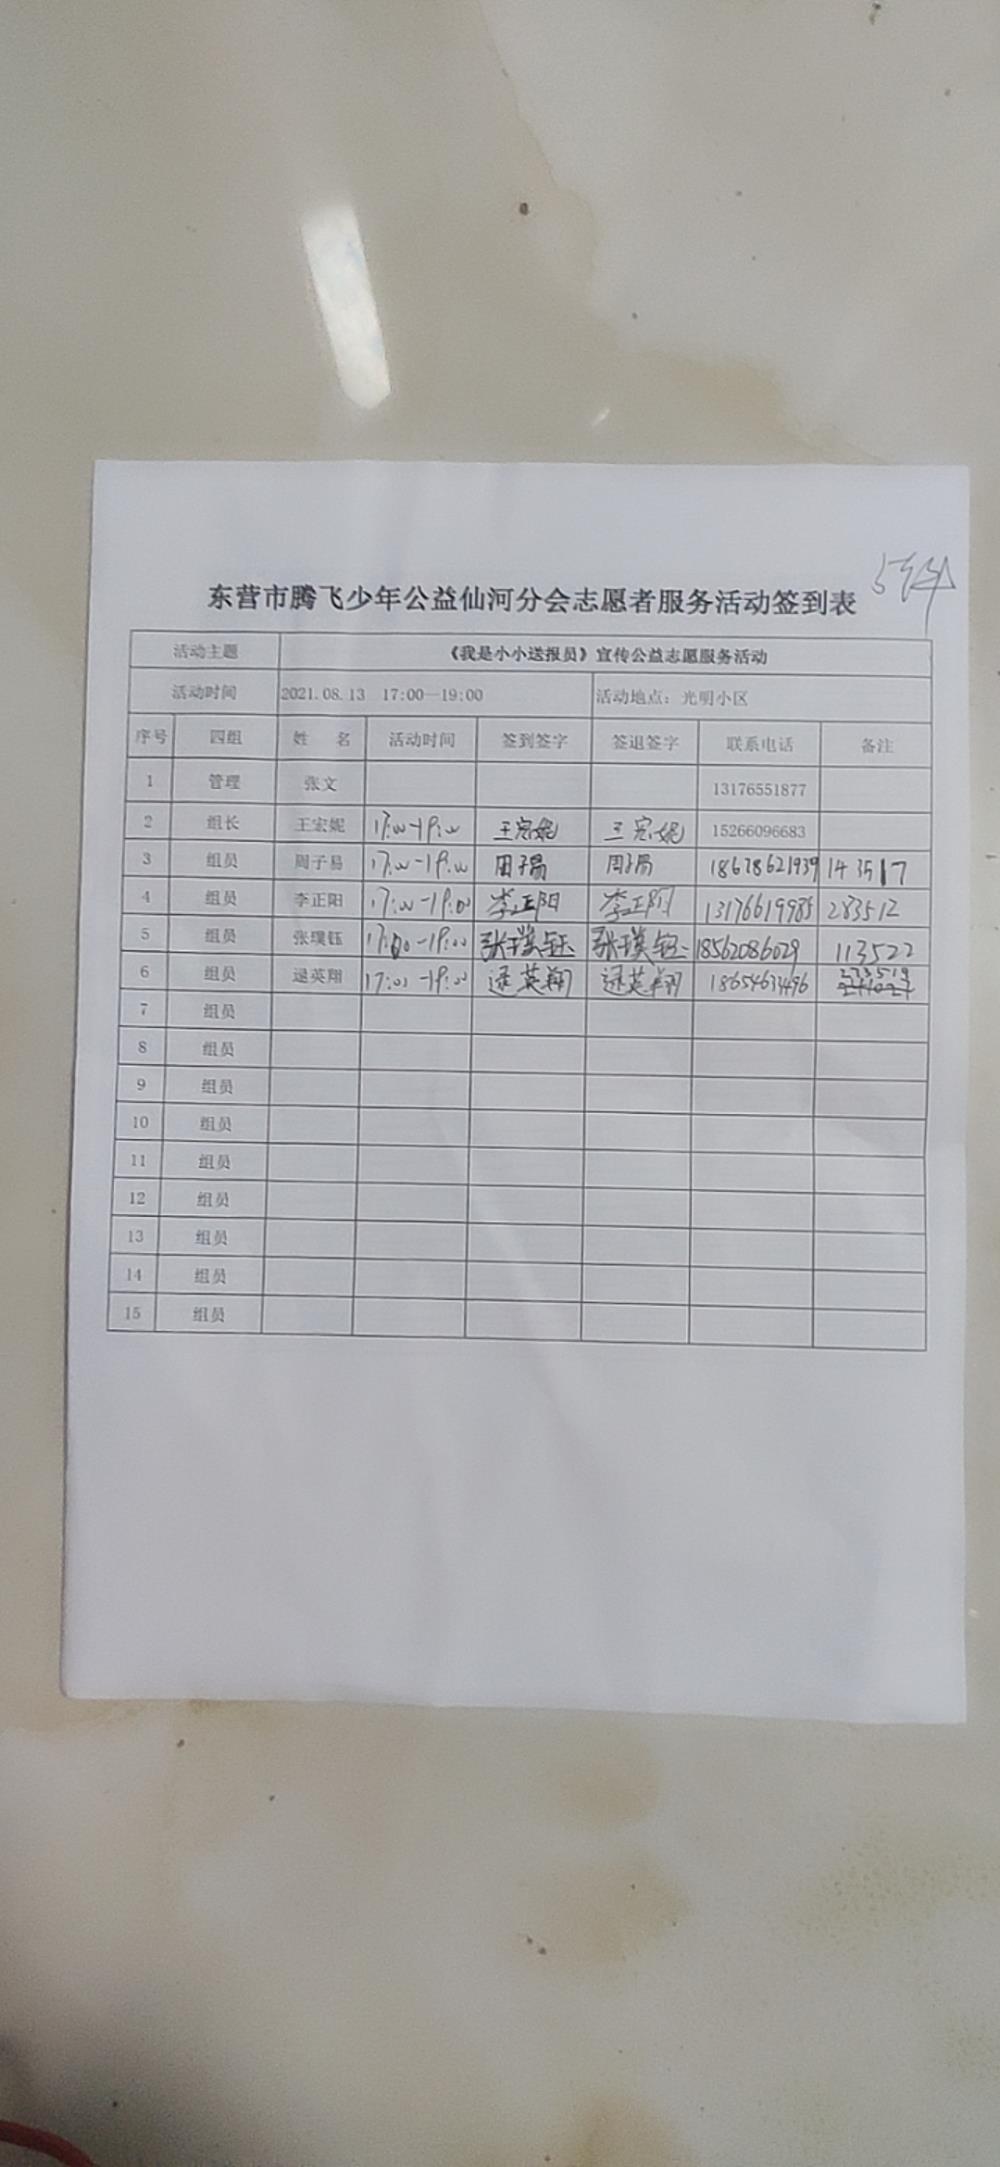 东营市腾飞少年公益仙河分会志愿者服务活动签到表
活动主题 《我是小小送报员》宣传公益志愿服务活动
活动时间 2021.08.13 17:00—19:00 活动地点：光明小区
序号 四组 姓 名 活动时间 签到签字 签退签字 联系电话 备注
1 管理 张文 13176551877
2 组长 王宏妮 17:00-19:00 王宏妮 王宏妮 15266096683
3 组员 周子易 17:00-19:00 周子易 周子易 18678621939 143517
4 组员 李正阳 17:00-19:00 李正阳 李正阳 13176619985 283512
5 组员 张璞钰 17:00-19:00 张璞钰 张璞钰 18562086029 113522
6 组员 逯英翔 17:00-19:00 逯英翔 逯英翔 18654634496
7 组员
8 组员
9 组员
10 组员
11 组员
12 组员
13 组员
14 组员
15 组员